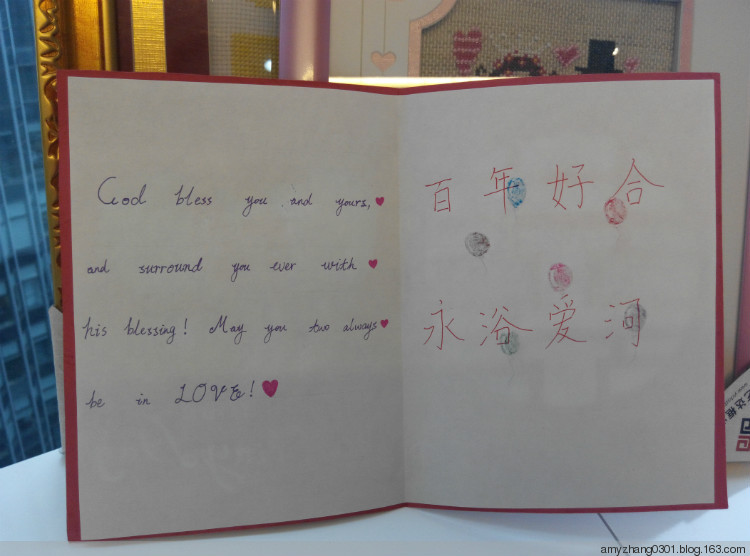 God bless you and yours,
and surround you ever with
his blessing! May you two always
be in LOVE!
百年好合
永浴爱河
amyzhang0301.blog.163.com